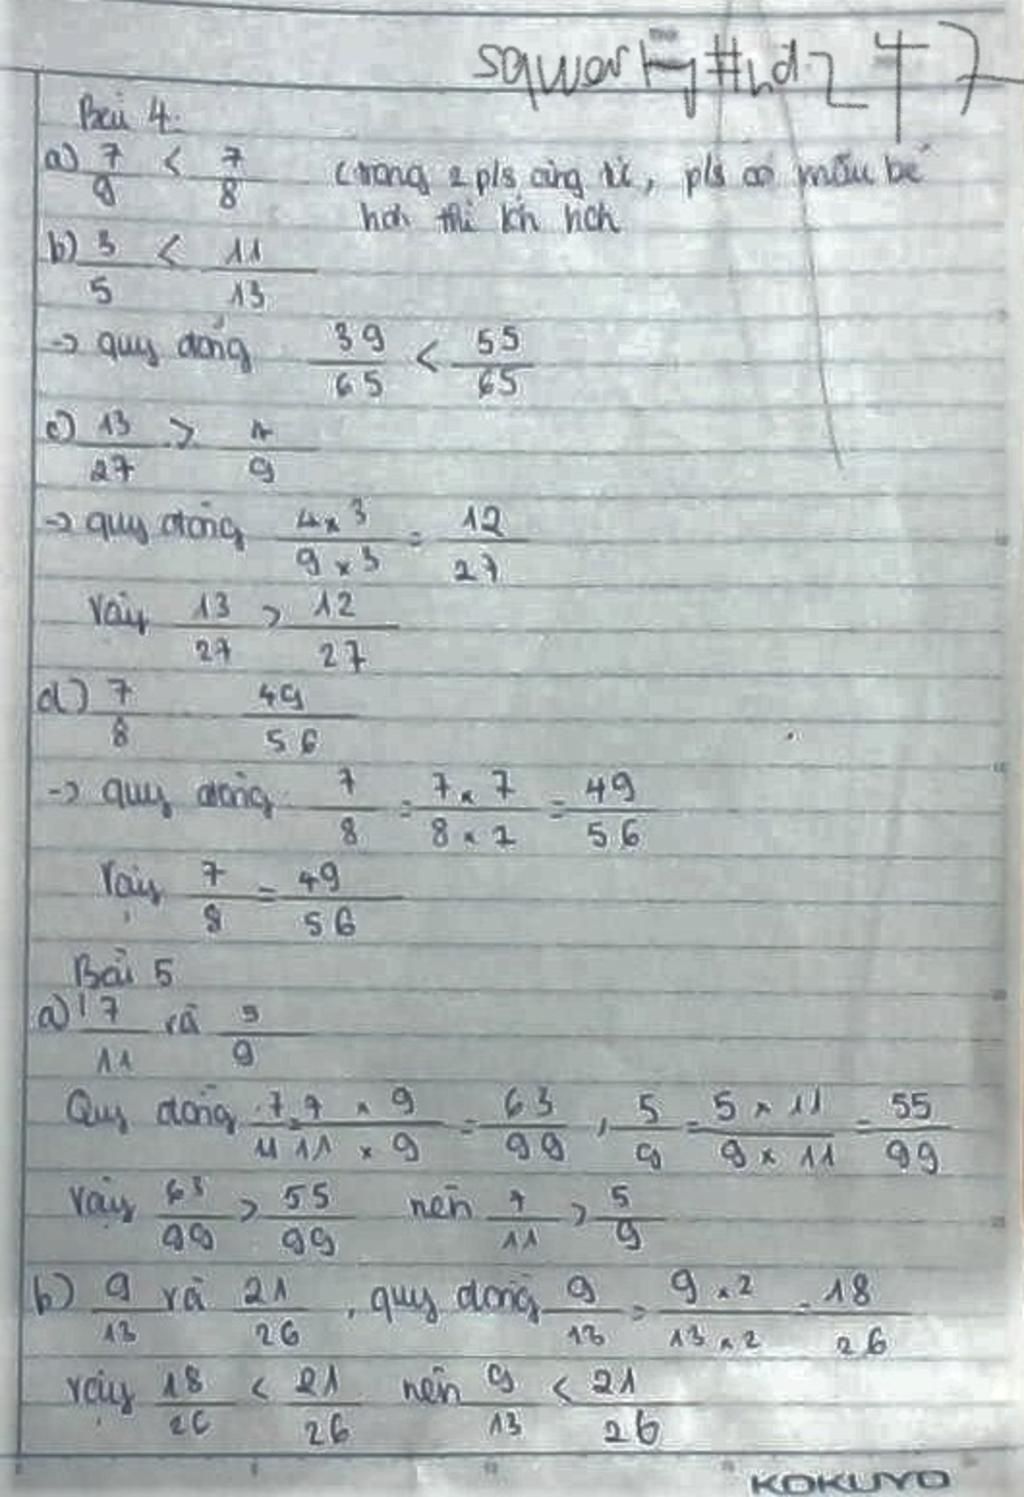 Bài 4:
a) 7/9 < 7/8 (trong 2 pls cùng tử, pls có mẫu bé
hơn thì lớn hơn
b) 3/5 < 11/13
-> quy đồng 39/65 < 55/65
c) 13/27 > 4/9
-> quy đồng 4 x 3/9 x 3 = 12/27
Vậy 13/27 > 12/27
d) 7/8 49/56
-> quy đồng 7/8 = 7 x 7/8 x 7 = 49/56
Vậy 7/8 = 49/56
Bài 5
a) 7/11 và 5/9
Quy đồng 7/11 = 7 x 9/11 x 9 = 63/99, 5/9 = 5 x 11/9 x 11 = 55/99
Vậy 63/99 > 55/99 nên 7/11 > 5/9
b) 9/13 và 21/26, quy đồng 9/13 = 9 x 2/13 x 2 = 18/26
Vậy 18/26 < 21/26 nên 9/13 < 21/26
KOKUYO